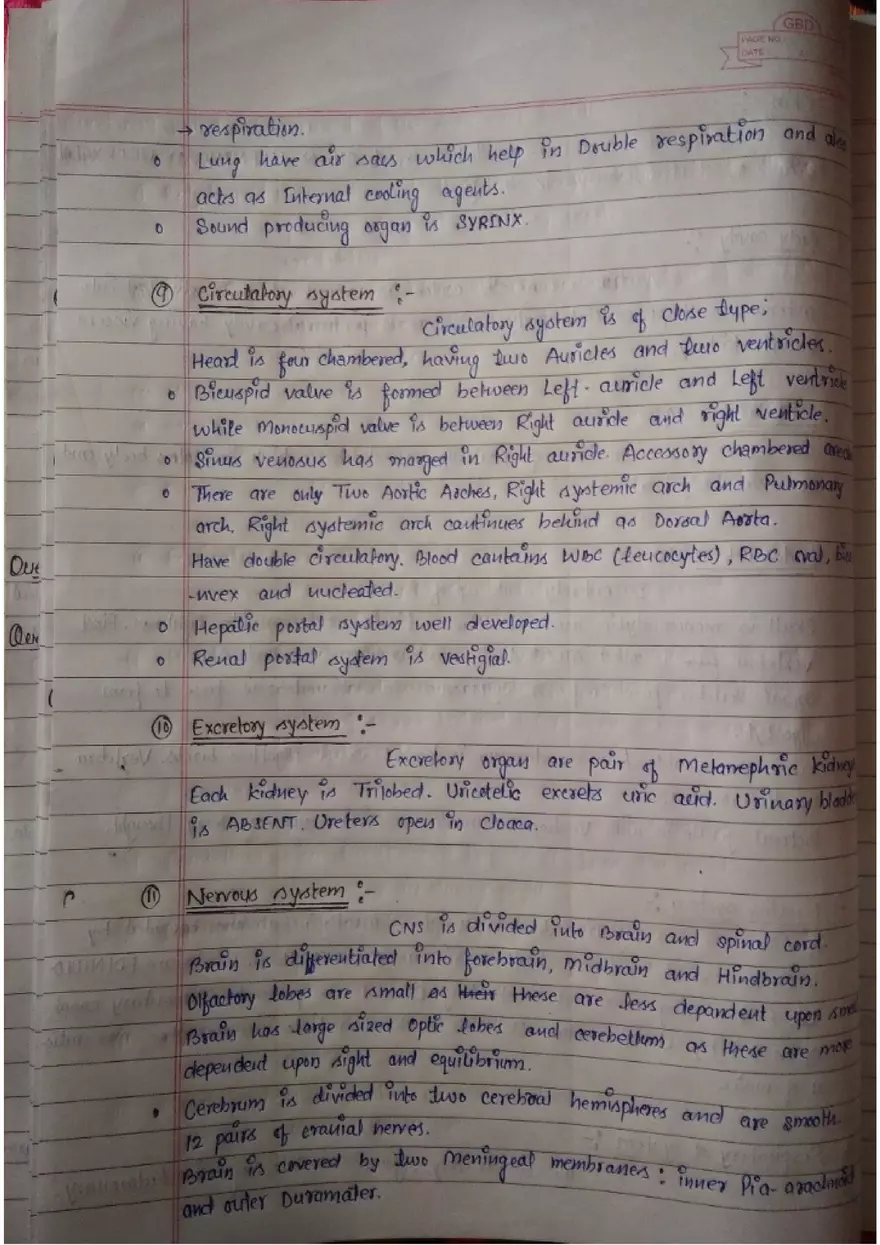 GBD
PAGE NO.
DATE
→ respiration.
o Lung have air sacs which help in Double respiration and also
acts as Internal cooling agents.
o Sound producing organ is SYRINX.
⑨ Circulatory system :-
Circulatory system is of close type;
Heart is four chambered, having two Auricles and two ventricles.
o Bicuspid valve is formed between Left-auricle and Left ventricle
while Monocuspid valve is between Right auricle and right venticle.
o Sinus venosus has marged in Right auricle. Accessory chambered
o There are only Two Aortic Arches, Right systemic arch and Pulmonary
arch. Right systemic arch cantinues behind as Dorsal Aorta.
Have double circulatory. Blood cantains WBC (leucocytes), RBC oval,
-nvex and nucleated.
o Hepatic portal system well developed.
o Renal portal system is vestigial.
⑩ Excretory system :-
Excretory organ are pair of Metanephric kidney
Each kidney is Trilobed. Uricotelic excrets uric acid. Urinary bladd
is ABSENT. Ureters open in cloaca.
⑪ Nervous system :-
CNS is divided into Brain and spinal cord.
Brain is differentiated into forebrain, Midbrain and Hindbrain.
Olfactory lobes are small as their these are less depandent upon
Brain has large sized optic lobes and cerebellum as these are more
dependent upon sight and equilibrium.
• Cerebrum is divided into two cerebral hemispheres and are smooth.
12 pairs of cranial nerves.
Brain is covered by two meningeal membranes : inner Pia-arachnoid
and outer Duramater.